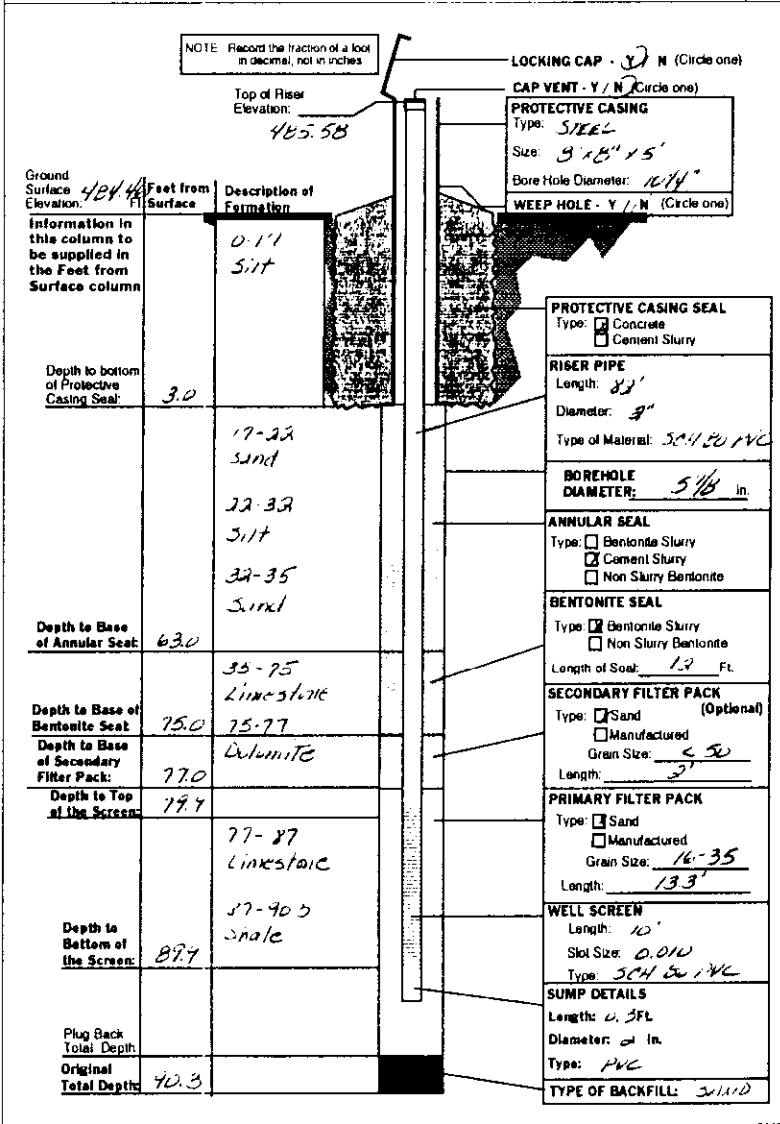 NOTE Record the fraction of a foot
in decimal, not in inches
LOCKING CAP - Y / N (Circle one)
CAP VENT - Y / N (Circle one)
Top of Riser
Elevation:
485.58
PROTECTIVE CASING
Type: STEEL
Size: 8" x 8" x 5'
Bore Hole Diameter: 10 1/4"
WEEP HOLE - Y / N (Circle one)
Ground
Surface
Elevation: 484.46 Ft.
Feet from
Surface
Description of
Formation
Information in
this column to
be supplied in
the Feet from
Surface column
0-17
Silt
Depth to bottom
of Protective
Casing Seal: 3.0
17-22
Sand
22-32
Silt
32-35
Sand
Depth to Base
of Annular Seal: 63.0
35-75
Limestone
Depth to Base of
Bentonite Seal: 75.0
75-77
Dolomite
Depth to Base
of Secondary
Filter Pack: 77.0
Depth to Top
of the Screen: 79.4
77-87
Limestone
Shale
Depth to
Bottom of
the Screen: 89.4
Plug Back
Total Depth
Original
Total Depth:
PROTECTIVE CASING SEAL
Type: Concrete
Cement Slurry
RISER PIPE
Length:
Diameter: 2"
Type of Material: SCH 80 PVC
BOREHOLE
DIAMETER: 5 7/8 in.
ANNULAR SEAL
Type: Bentonite Slurry
Cement Slurry
Non Slurry Bentonite
BENTONITE SEAL
Type: Bentonite Slurry
Non Slurry Bentonite
Length of Seal: 12 Ft.
SECONDARY FILTER PACK
(Optional)
Type: Sand
Manufactured
Grain Size: < 50
Length: 2'
PRIMARY FILTER PACK
Type: Sand
Manufactured
Grain Size: 16-35
Length: 13.3'
WELL SCREEN
Length: 10'
Slot Size: 0.010
Type: SCH 80 PVC
SUMP DETAILS
Length: Ft.
Diameter: 2 in.
Type: PVC
TYPE OF BACKFILL: SAND